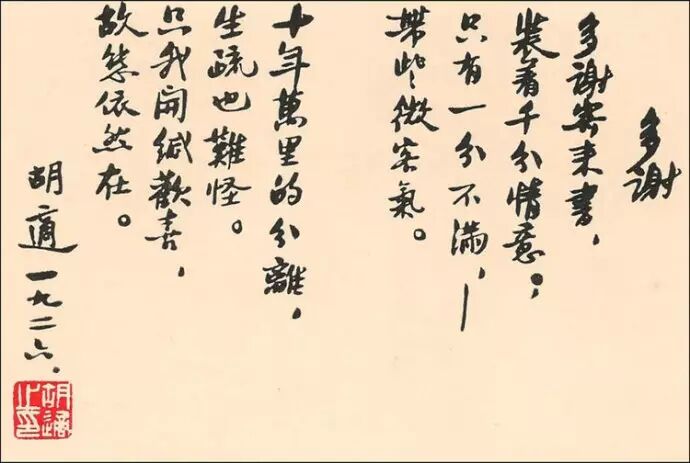 多謝
多謝寄來書,
裝着千分情意;
只有一分不滿,—
帶些微客氣。
十年萬里的分離,
生疏也難怪。
只我開緘歡喜,
故態依然在。
胡適 一九二六.
胡適之章